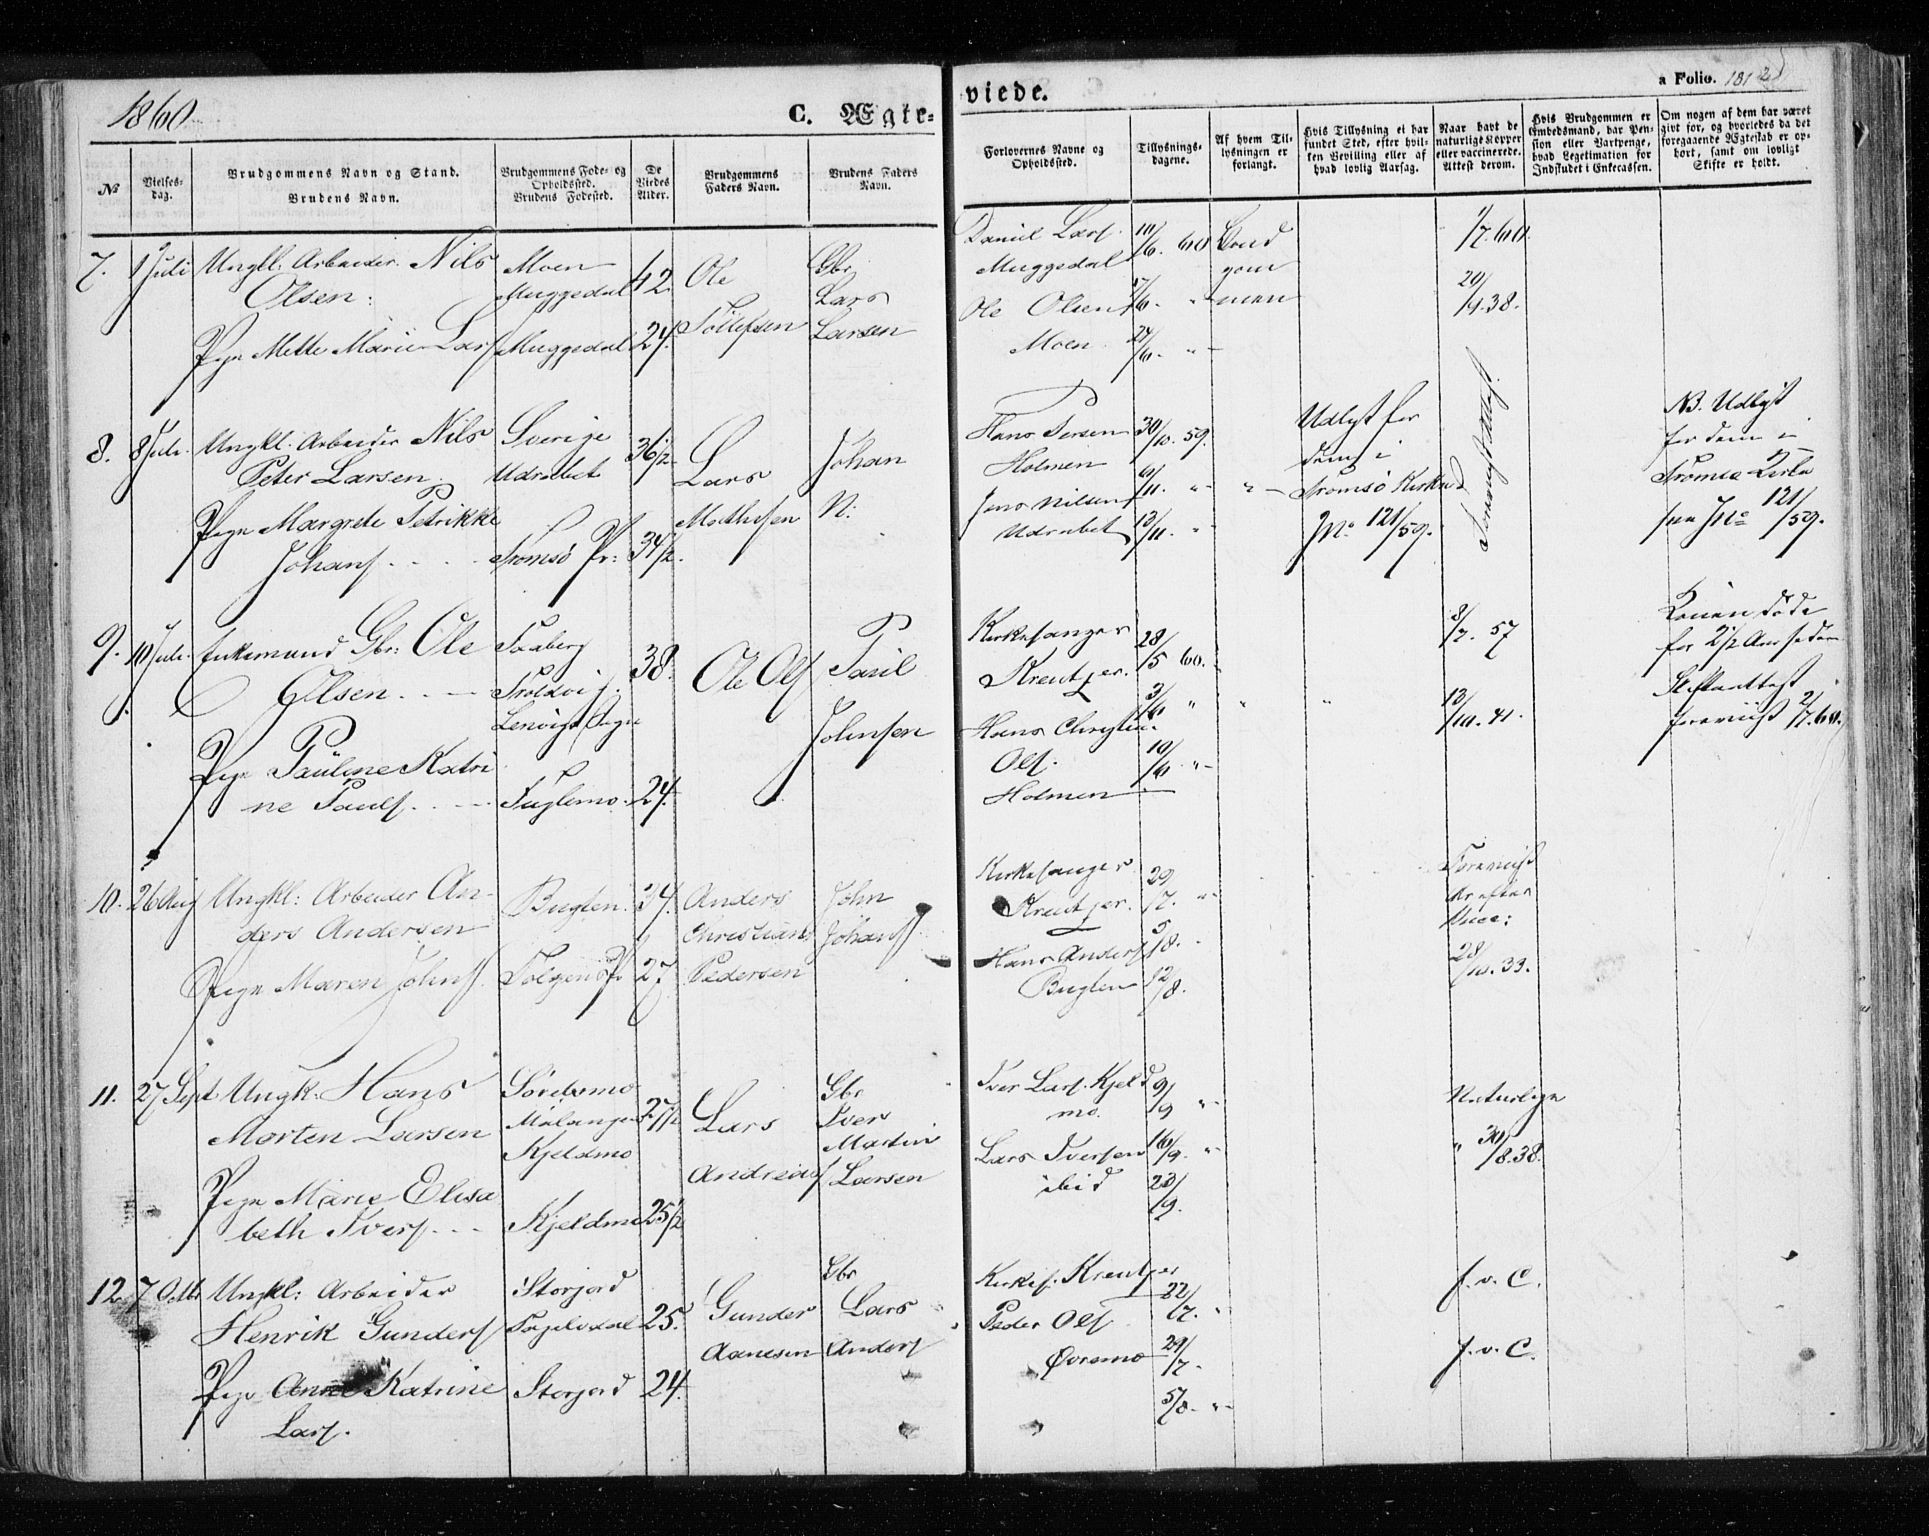 1860
C. Ægte-
viede.
a Folio. 181
No
Vielses-
dag.
Brudgommens Navn og Stand.
Brudens Navn.
Brudgommens Føde- og
Opholdssted.
Brudens Fødested.
De
Viedes
Alder.
Brudgommens
Faders Navn.
Brudens Faders
Navn.
Forlovernes Navne og
Opholdssted.
Tillysnings-
dagene.
Af hvem Til-
lysningen er
forlangt.
Hvis Tillysning ei har
fundet Sted, efter hvil-
ken Bevilling eller af
hvad lovlig Aarsag.
Naar havt de
naturlige Kopper
eller vaccinerede.
Attest derom.
Hvis Brudgommen er
Embedsmand, har Pen-
sion eller Vartpenge,
hvad Legetimation for
Indskudet i Enkecassen.
Om nogen af dem har været
gift før, og hvorledes da det
foregaaende Ægteskab er op-
hørt, samt om lovligt
Skifte er holdt.
7. 1 Juli Ungkl. Arbeider Nils
Olsen
Moen
Muggedal
42.
Ole
Tollefsen
Gbr
Lars
Larsen
Pige Mette Marie Lars
Muggedal
24.
Daniel Lars
Muggedal
Ole Olsen
Moen
10/6. 60
17/6. "
24/6. "
Brud
gom
men
1/7. 60.
20/9. 38.
8. 8 Juli Ungkl. Arbeider Nils
Peter Larsen
Sverige
Udrabet
36 1/2
Lars
Mathisen
Johan
N:
Pige Margrete Petrikke
Johans
Tromsö Pr:
34 1/2.
Hans Persen
Holmen
Jens Nilsen
Udrabet
30/10. 59.
6/11. "
13/11. "
Udlyst for
dem i
Tromsö Kirke
No 121/59.
NB. Udlyst
for dem i
Tromsö Kirke
No 121/59.
9. 10 Juli Enkemand Gbr: Ole
Olsen
Faaberg
Troldvig
Lenvigs Sogn
38.
Ole Ols
Paul
Johnsen
Pige Pauline Katri
ne Pauls
Fuglemo
24.
Kirkesanger
Kreutzer.
Hans Christian
Ols.
Holmen
28/5 60.
3/6 "
10/6 "
8/7. 57
13/10. 41.
Konen døde
for 2 1/2 Aar siden
Skifteattest
foreviist 2/7. 60.
10. 26 Aug Ungkl: Arbeider An-
ders Andersen
Buglen
34.
Anders
Christian
Pedersen
John
Johans
Pige Maren Johns
Tolgens Pr
27
Kirkesanger
Kreutzer.
Hans Anders
Buglen
29/7. "
5/8. "
12/8.
Foreviist
28/10. 33.
11. 27 Sept Ungk. Hans
Morten Larsen
Målangen
Kjeldmo
27 1/2
Lars
Andreas
Gbr
Iver
Martin
Larsen
Pige Marie Elisa
beth Ivers
Kjeldmo
25 1/2
Iver Lars. Kjeld
mo.
Lars Iversen
ibid
9/9 "
16/9. "
23/9.
Naturlige
" 30/8. 38.
12. 7 Octbr Ungkl: Arbeider
Henrik Gunders
Storjord
25.
Gunder
Aanesen
Gbr
Lars
Anders
Pige Anne Katrine
Lars.
Storjord
24.
Kirkes. Kreutzer
Peder Ols
Øvremo
22/7. "
29/7.
5/8. "
f. v. C.
f. v. C.